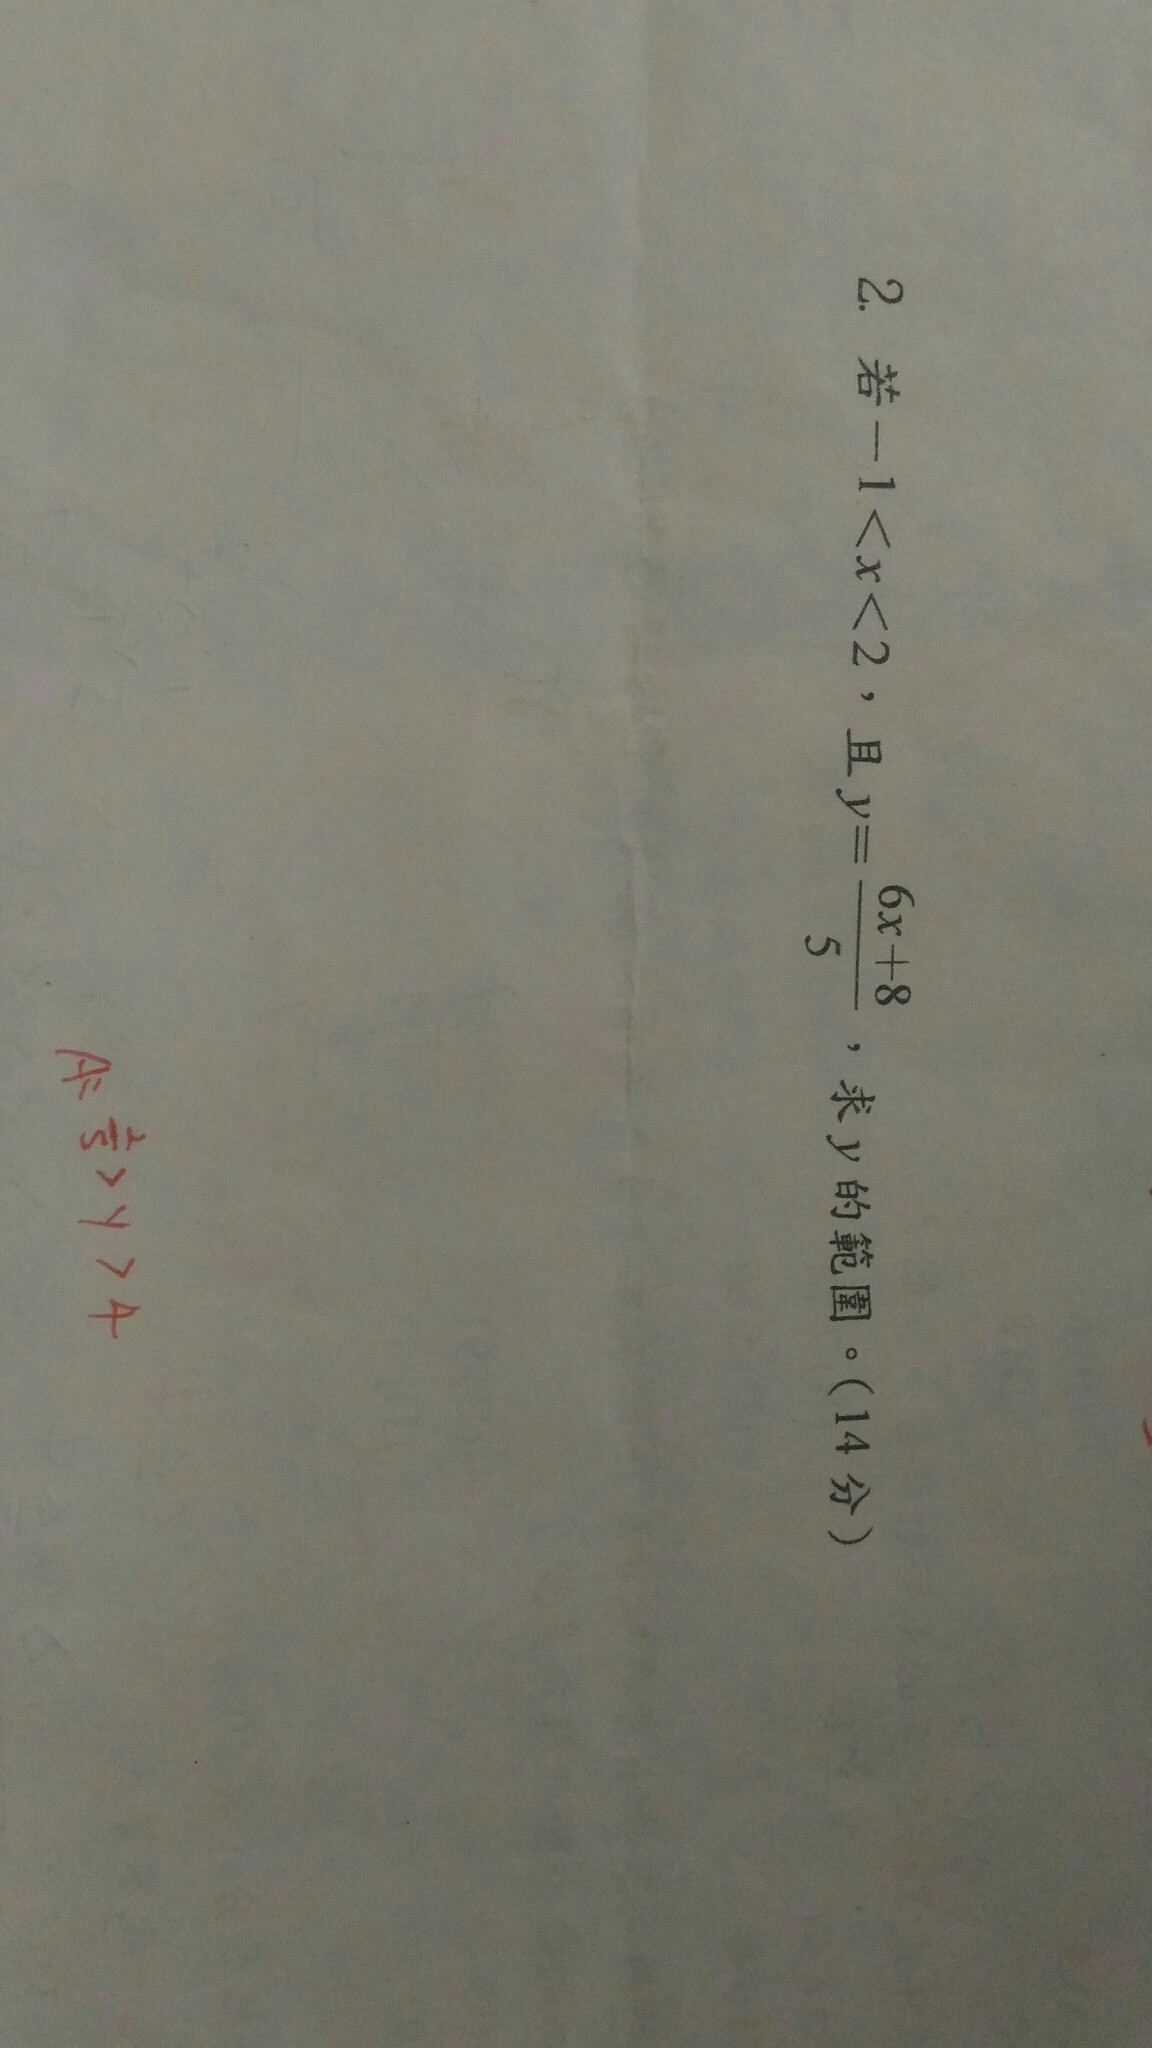 2. 若-1<x<2，且y=\frac{6x+8}{5}，求y的範圍。(14分)
A= \frac{2}{5}>y>4